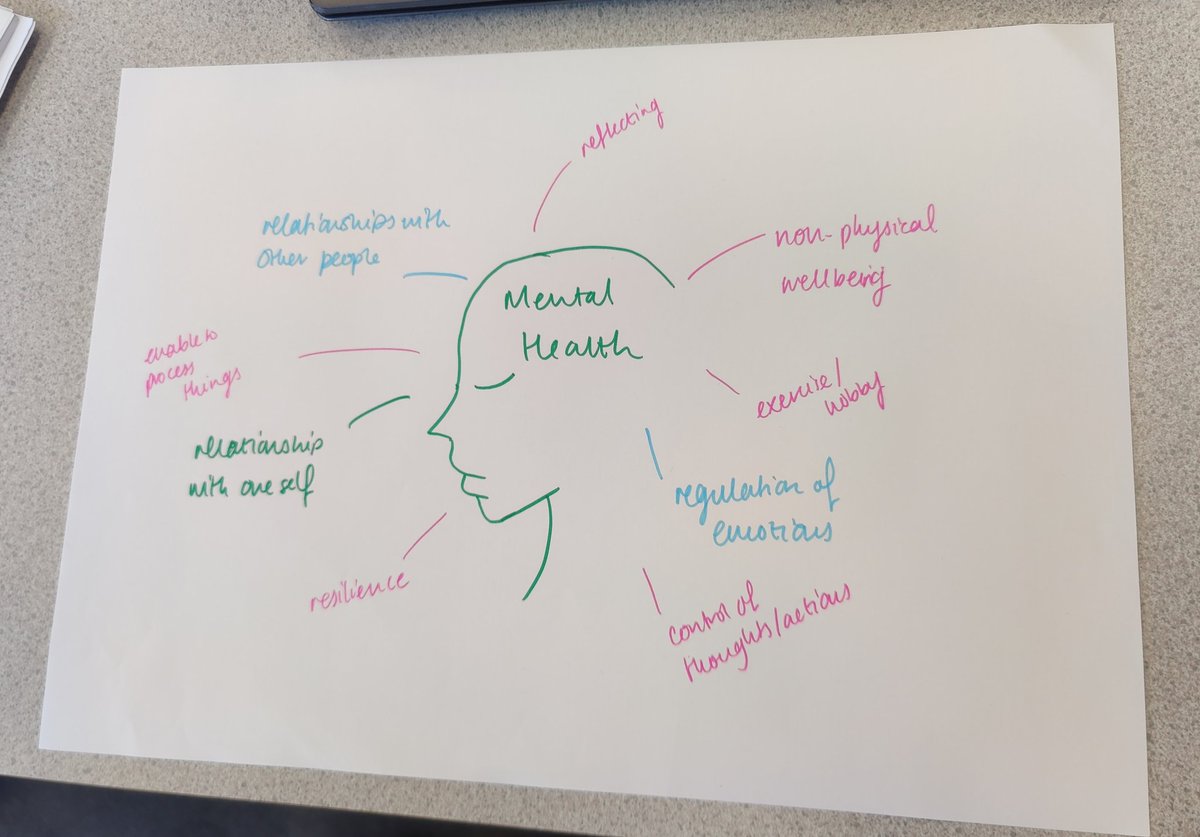 reflecting
relationships with
other people
non-physical
wellbeing
Mental
Health
enable to
process
things
exercise/
hobby
relationship
with oneself
regulation of
emotions
resilience
control of
thoughts/actions